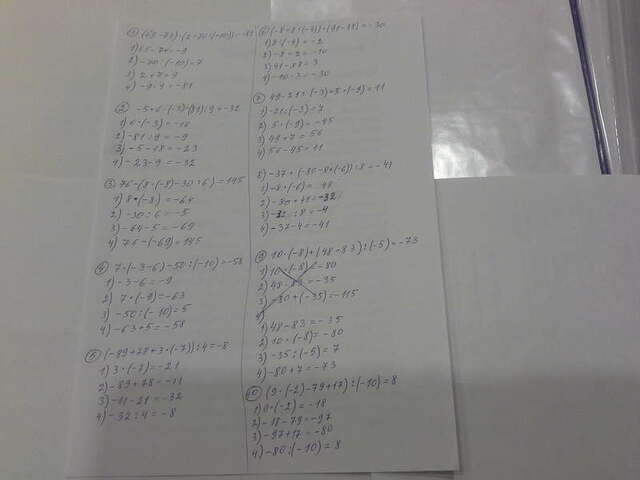 2) -70:(-10)=7
3) 2+7=9
4) -9·9=-81
② -5+6·(-3)+(-81):9=-32
1) 6·(-3)=-18
2) -81:9=-9
3) -5-18=-23
4) -23-9=-32
③ 76-(8·(-8)-30:6)=145
1) 8·(-8)=-64
2) -30:6=-5
3) -64-5=-69
4) 76-(-69)=145
④ 7·(-3-6)-50:(-10)=-58
1) -3-6=-9
2) 7·(-9)=-63
3) -50:(-10)=5
4) -63+5=-58
⑤ (-89+78+3·(-7)):4=-8
1) 3·(-7)=-21
2) -89+78=-11
3) -11-21=-32
4) -32:4=-8
1) 8:(-4)=-2
2) -8-2=-10
3) 91-88=3
4) -10·3=-30
⑦ 49-21:(-3)+5·(-9)=11
1) -21:(-3)=7
2) 5·(-9)=-45
3) 49+7=56
4) 56-45=11
8) -37+(-80-8·(-6)):8=-41
1) -8·(-6)=48
2) -80+48=-32
3) -32:8=-4
4) -37-4=-41
⑨ 10·(-8)+(48-83):(-5)=-73
1) 10·(-8)=-80
2) 48-83=-35
3) -80+(-35)=-115
4)
1) 48-83=-35
2) 10·(-8)=-80
3) -35:(-5)=7
4) -80+7=-73
⑩ (9·(-2)-79+17):(-10)=8
1) 9·(-2)=-18
2) -18-79=-97
3) -97+17=-80
4) -80:(-10)=8